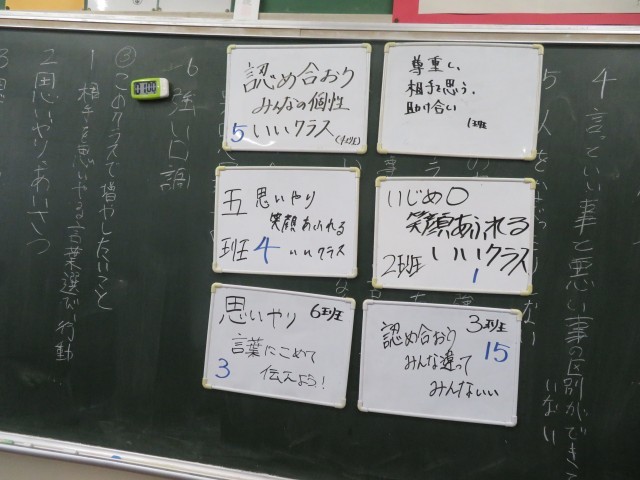 4 言っていい事と悪い事の区別ができ
いない
5 人を
ない
6 強い口調
③このクラスで増やしたいこと
1 相手を思いやる言葉選び、行動
2 思いやり、あいさつ
尊重し、
相手を思う、
助け合い
1班
認め合おう
みんなの個性
5 いいクラス
いじめ0
笑顔あふれる
2班 いいクラス
1
五班
思いやり
笑顔あふれる
4 いいクラス
3班
認め合おう
15
みんな違って
みんないい
思いやり 6班
言葉にこめて
3 伝えよう!